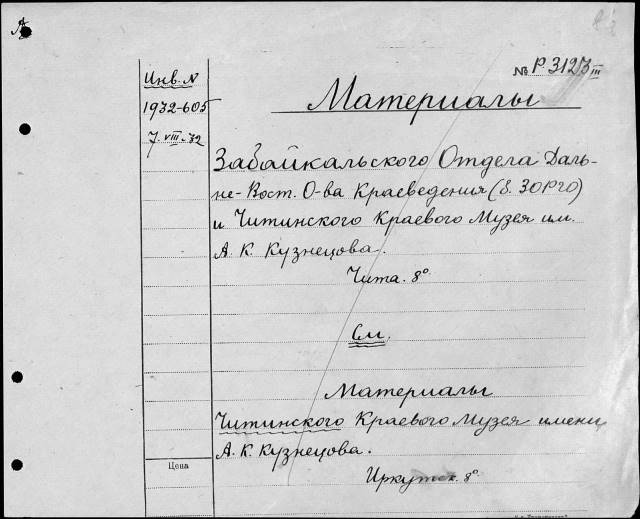 № Р 3123 III
Инв. N
1932-605
7.VIII-32
Материалы
Забайкальского Отдела Даль-
не-Вост. О-ва Краеведения (б. ЗОРГО)
и Читинского Краевого Музея им.
А. К. Кузнецова.
Чита. 8°
См.
Материалы
Читинского Краевого Музея имени
А. К. Кузнецова.
Иркутск. 8°
Цена